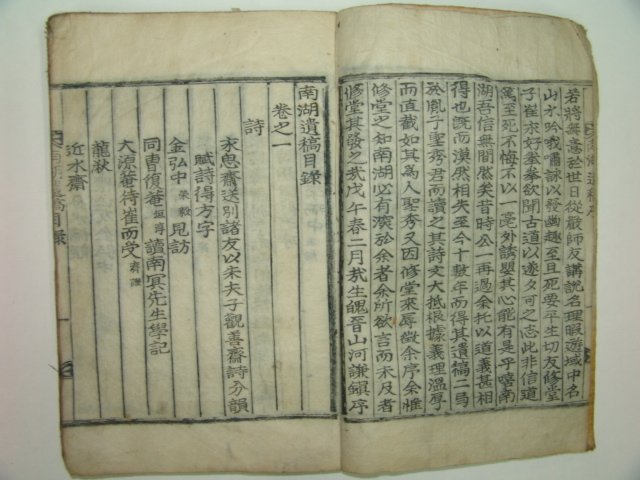 若將無意於世日從嚴師友講說名理暇遊域中名
山水吟哦嘯詠以發幽趣至且死要平生切友修堂
子崔求好拳拳欲聞古道以遂夕可之志此非信道
篤至死不悔不以一毫外誘塱其心能有是乎嗟南
湖吾信無間然矣昔時公一再過余托以道義甚相
得也既而漠然相失至今十數年而得其遺稿二局
於胤子聖秀君而讀之其詩文大抵根據義理溫厚
而直截如其為人聖秀又因修堂來辱徵余序余惟
修堂之知南湖必有深於余者余所欲言而未及者
修堂其發之哉戊午春二月哉生魄晉山河謙鎭序
南湖遺稿目錄
卷之一
詩
求思齋送別諸友以朱夫子觀善齋詩分韻
賦詩得方字
金弘中 榮毅 見訪
同曺復菴 垣淳 讀南冥先生學記
大源菴待崔而受 濟謙
龍湫
近水齋